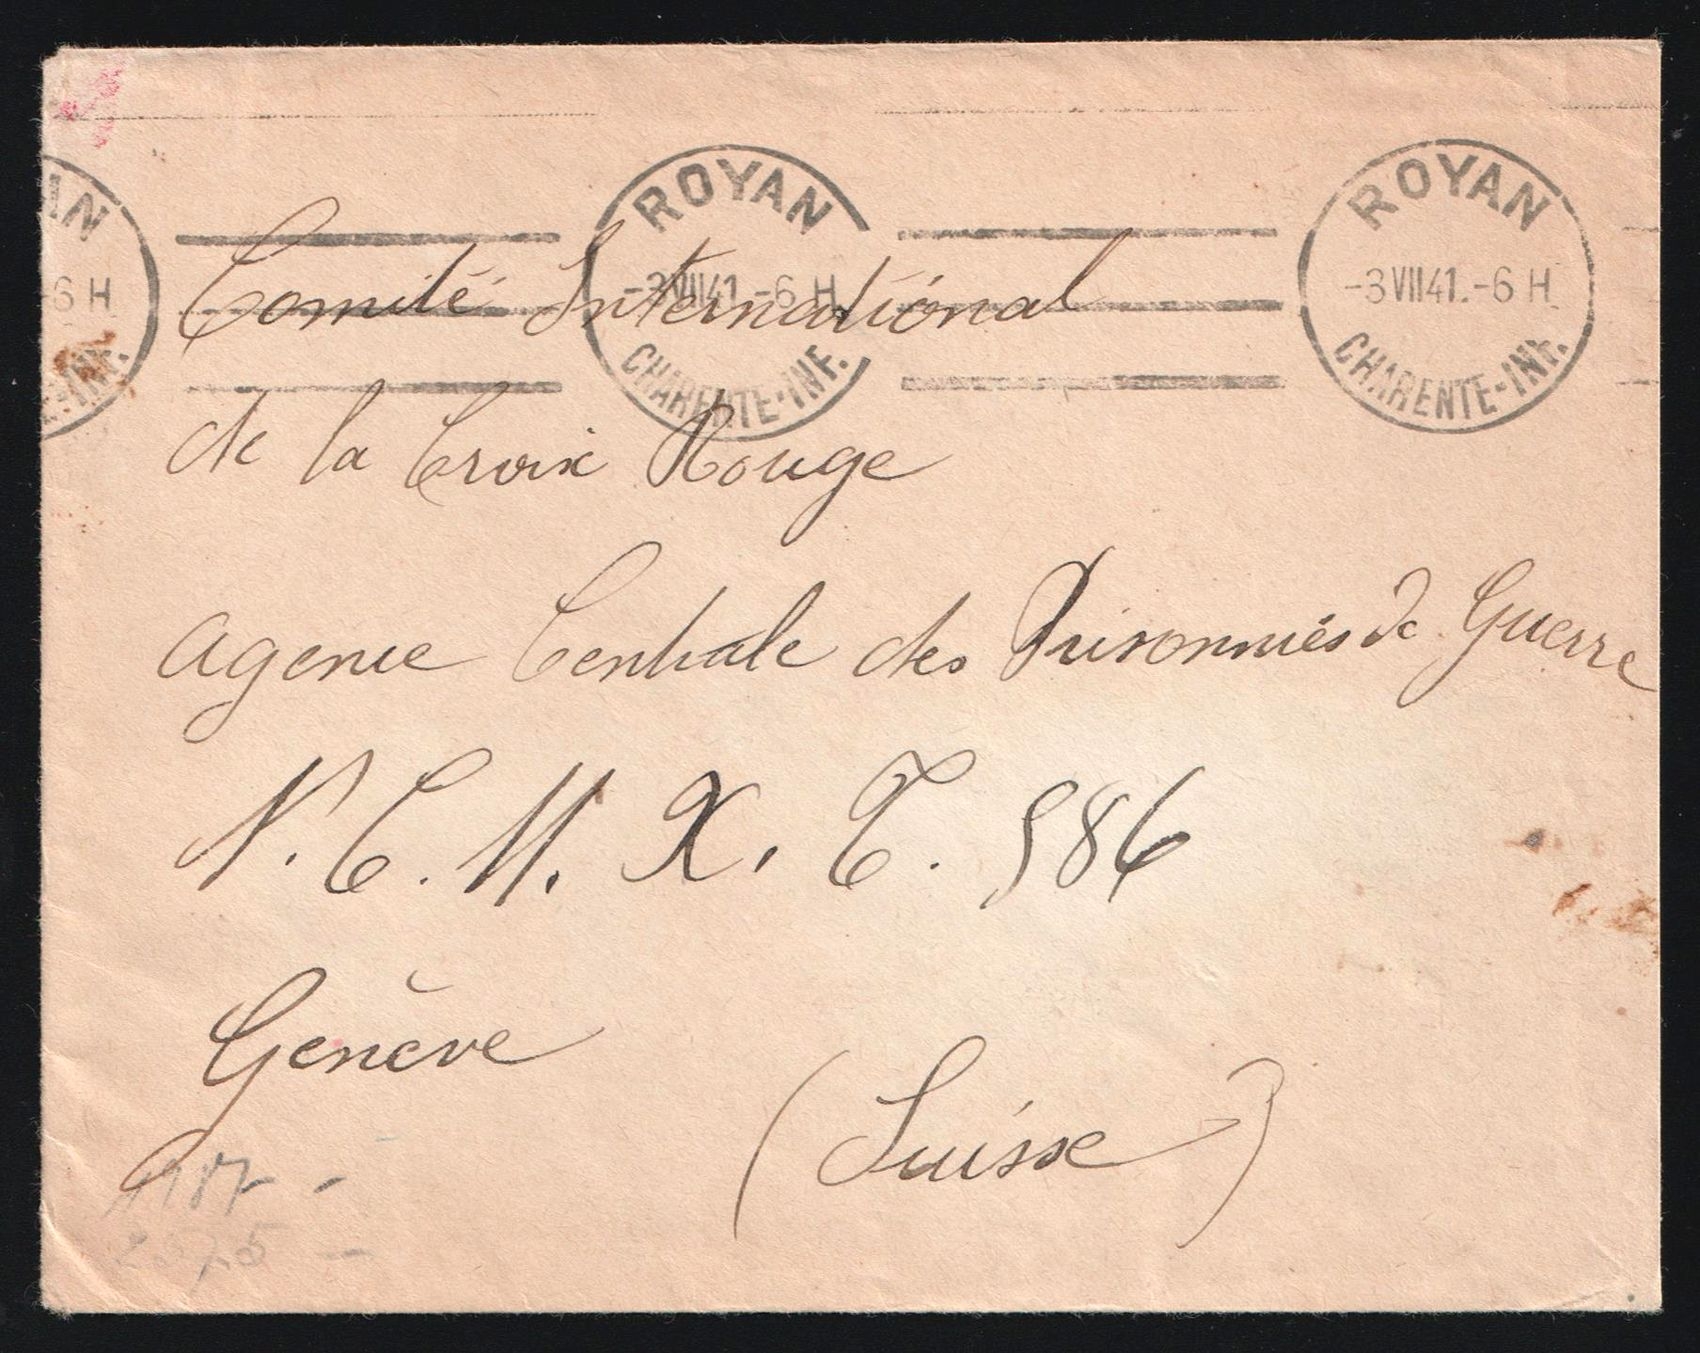 ROYAN
-3 VII 41.-6 H
CHARENTE-INF.
ROYAN
-3 VII 41.-6 H
CHARENTE-INF.
-6 H
E-INF.
Comité International
de la Croix Rouge
Agence Centrale des Prisonniés de Guerre
N. C. M. X. C. 586
Genève
(Suisse)